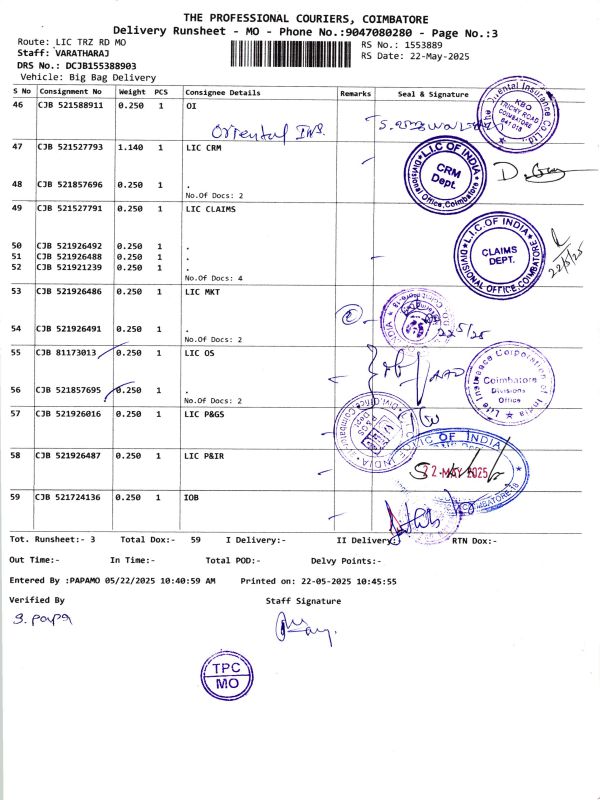 THE PROFESSIONAL COURIERS, COIMBATORE
Delivery Runsheet - MO - Phone No.:9047080280 - Page No.:3
Route: LIC TRZ RD MO
Staff: VARATHARAJ
DRS No.: DCJB155388903
Vehicle: Big Bag Delivery
RS No.: 1553889
RS Date: 22-May-2025
S No Consignment No Weight PCS Consignee Details Remarks Seal & Signature
46 CJB 521588911 0.250 1 OI
Oriental INS.
KBO
TRICHY ROAD
COIMBATORE
641 018
47 CJB 521527793 1.140 1 LIC CRM
L.I.C OF INDIA
CRM
Dept.
Divisional Office, Coimbatore
48 CJB 521857696 0.250 1 .
No.Of Docs: 2
49 CJB 521527791 0.250 1 LIC CLAIMS
L.I.C. OF INDIA
CLAIMS
DEPT.
DIVISIONAL OFFICE, COIMBATORE
22/5/25
50 CJB 521926492 0.250 1 .
51 CJB 521926488 0.250 1 .
52 CJB 521921239 0.250 1 .
No.Of Docs: 4
53 CJB 521926486 0.250 1 LIC MKT
22/5/25
54 CJB 521926491 0.250 1 .
No.Of Docs: 2
55 CJB 81173013 0.250 1 LIC OS
AAO
Life Insurance Corporation of India
Coimbatore
Divisions
Office
56 CJB 521857695 0.250 1 .
No.Of Docs: 2
57 CJB 521926016 0.250 1 LIC P&GS
58 CJB 521926487 0.250 1 LIC P&IR
LIC OF INDIA
22 MAY 2025
COIMBATORE-18
59 CJB 521724136 0.250 1 IOB
Tot. Runsheet:- 3 Total Dox:- 59 I Delivery:- II Delivery:- RTN Dox:-
Out Time:- In Time:- Total POD:- Delvy Points:-
Entered By :PAPAMO 05/22/2025 10:40:59 AM Printed on: 22-05-2025 10:45:55
Verified By Staff Signature
S. papa
TPC
MO